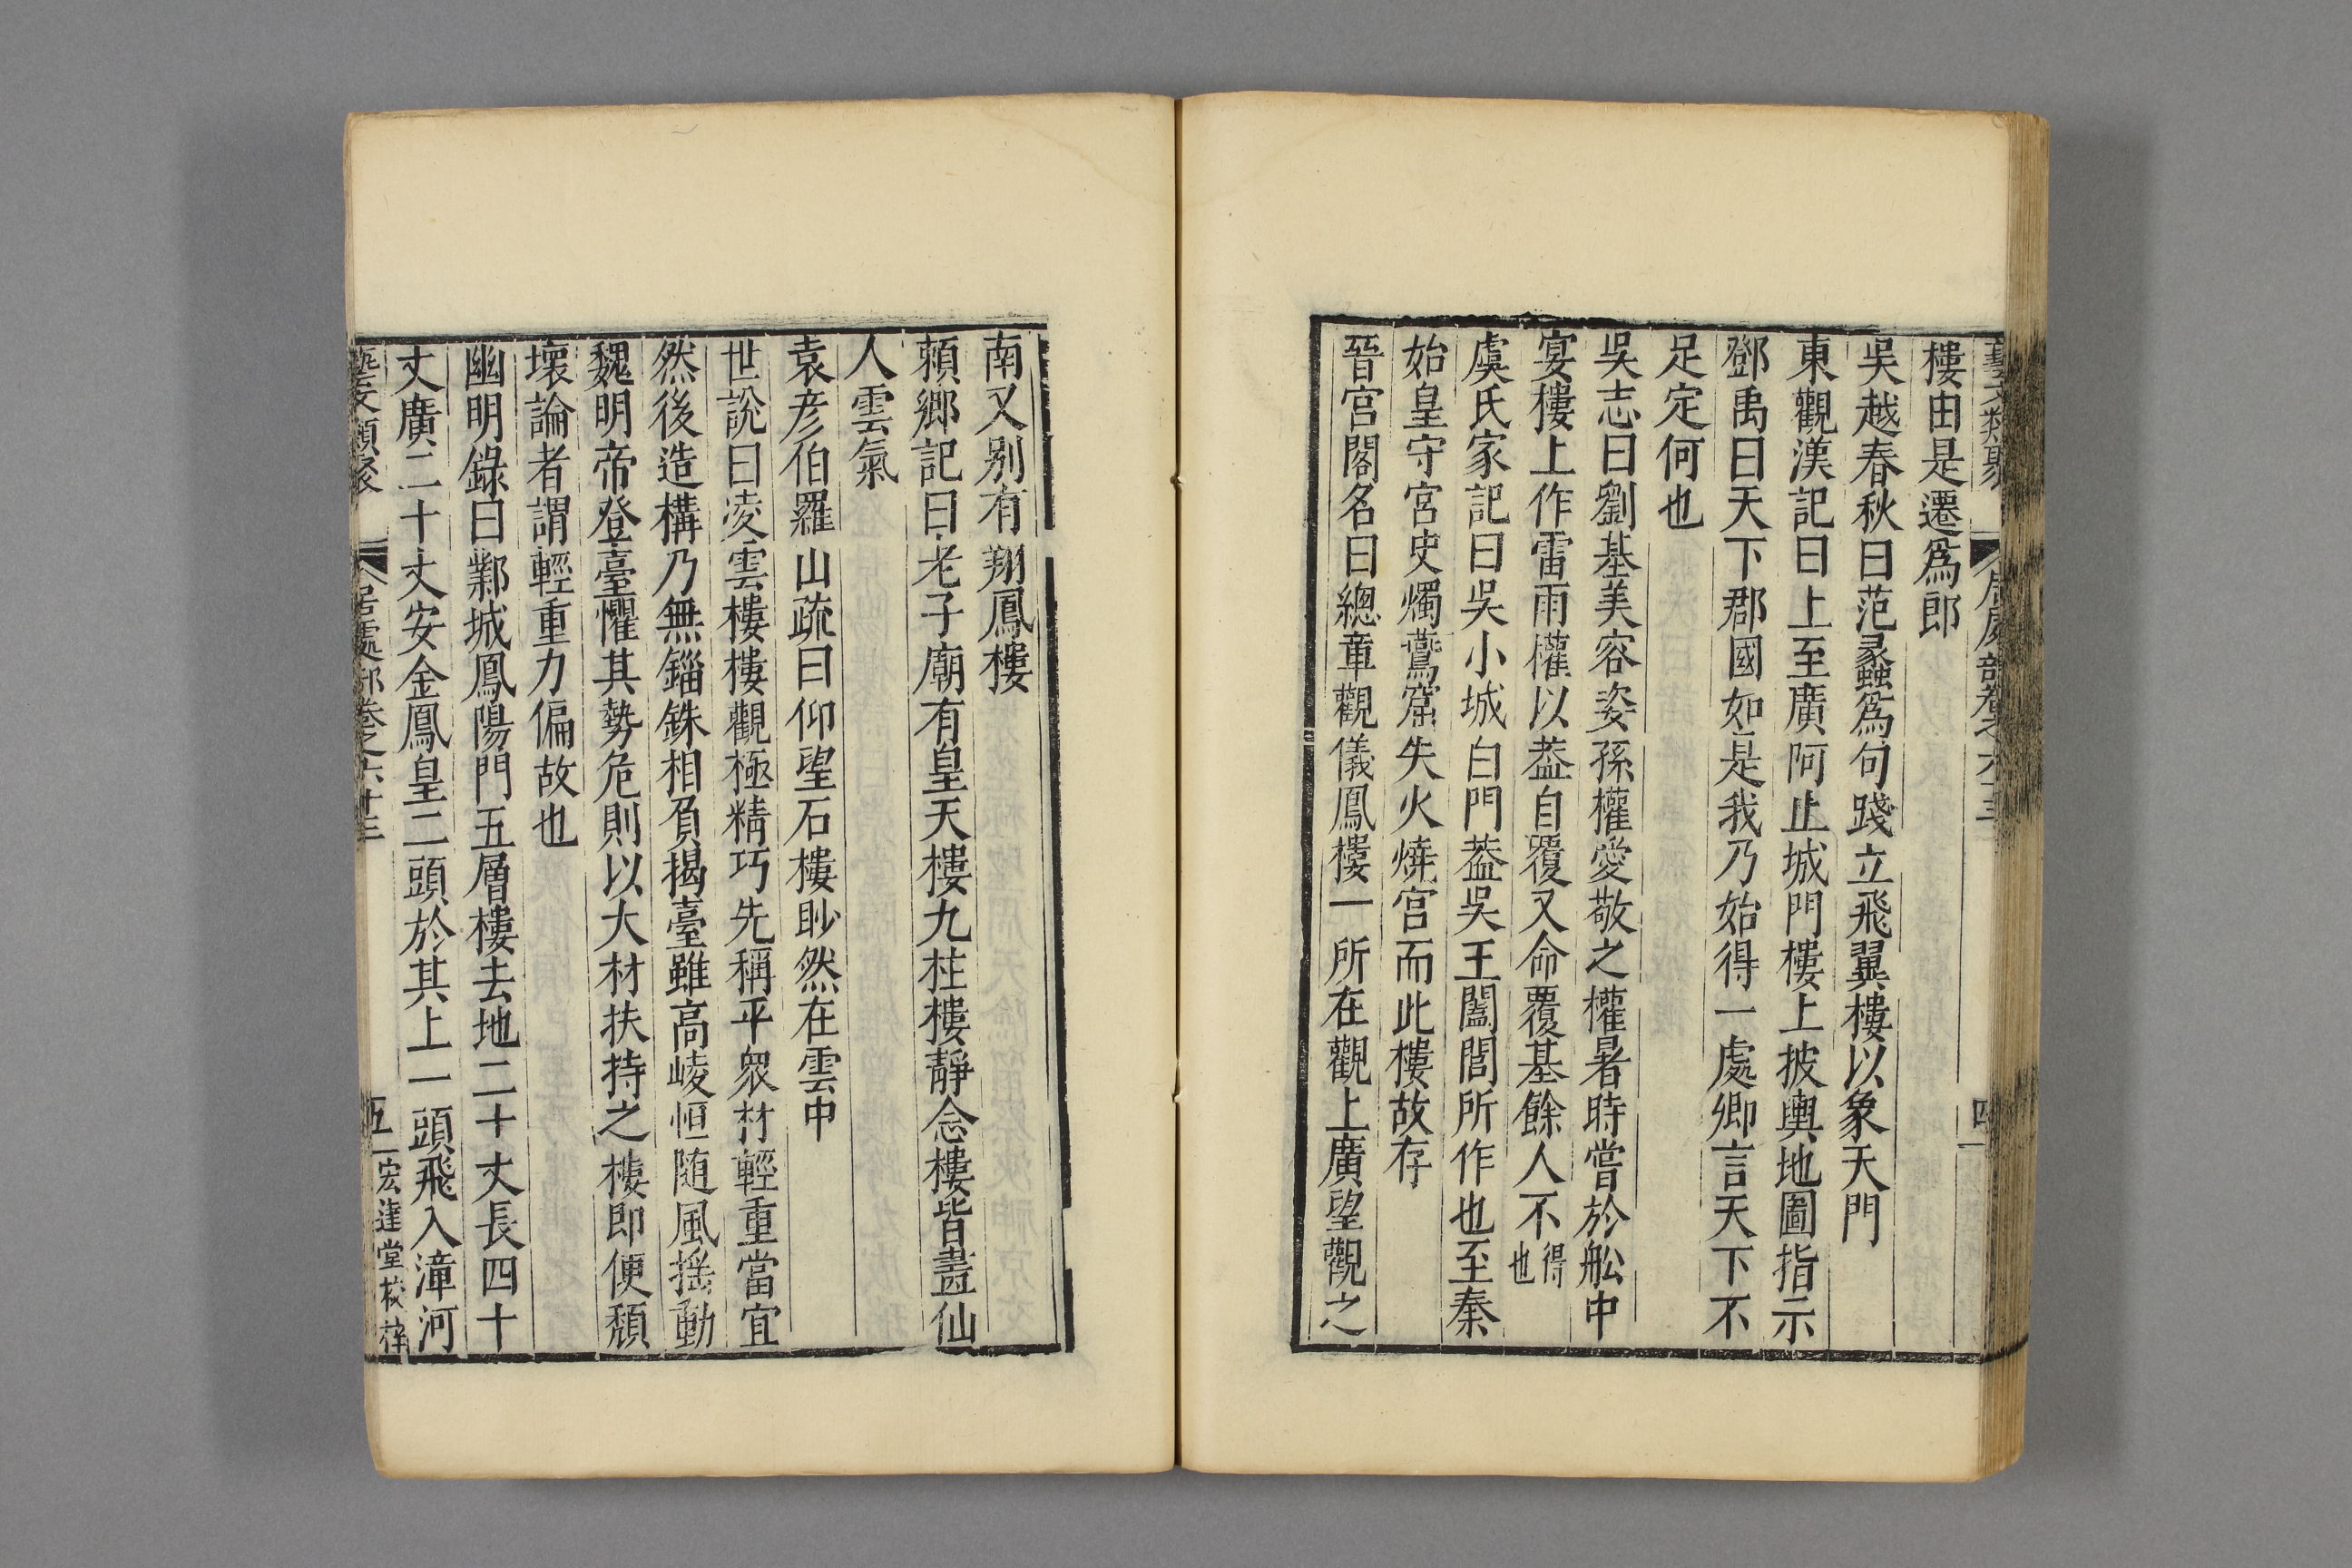 藝文類聚 居處部卷之六十三 四
樓由是遷爲郎
吳越春秋曰范蠡爲句踐立飛翼樓以象天門
東觀漢記曰上至廣阿止城門樓上披輿地圖指示
鄧禹曰天下郡國如是我乃始得一處卿言天下不
足定何也
吳志曰劉基美容姿孫權愛敬之權暑時嘗於舩中
宴樓上作雷雨權以葢自覆又命覆基餘人不得也
虞氏家記曰吳小城白門葢吳王闔閭所作也至秦
始皇守宮史燭鷰窟失火燒宮而此樓故存
晉宮閣名曰總章觀儀鳳樓一所在觀上廣望觀之
南又别有翔鳳樓
頼鄉記曰老子廟有皇天樓九柱樓靜念樓皆畫仙
人雲氣
袁彦伯羅山疏曰仰望石樓眇然在雲中
世說曰凌雲樓樓觀極精巧先稱平衆材輕重當宜
然後造構乃無錙銖相負揭臺雖高崚恒随風摇動
魏明帝登臺懼其勢危則以大材扶持之樓即便頹
壞論者謂輕重力偏故也
幽明錄曰鄴城鳳陽門五層樓去地二十丈長四十
丈廣二十丈安金鳳皇二頭於其上一頭飛入漳河
藝文類聚 居處部卷之六十三 五 宏達堂校梓